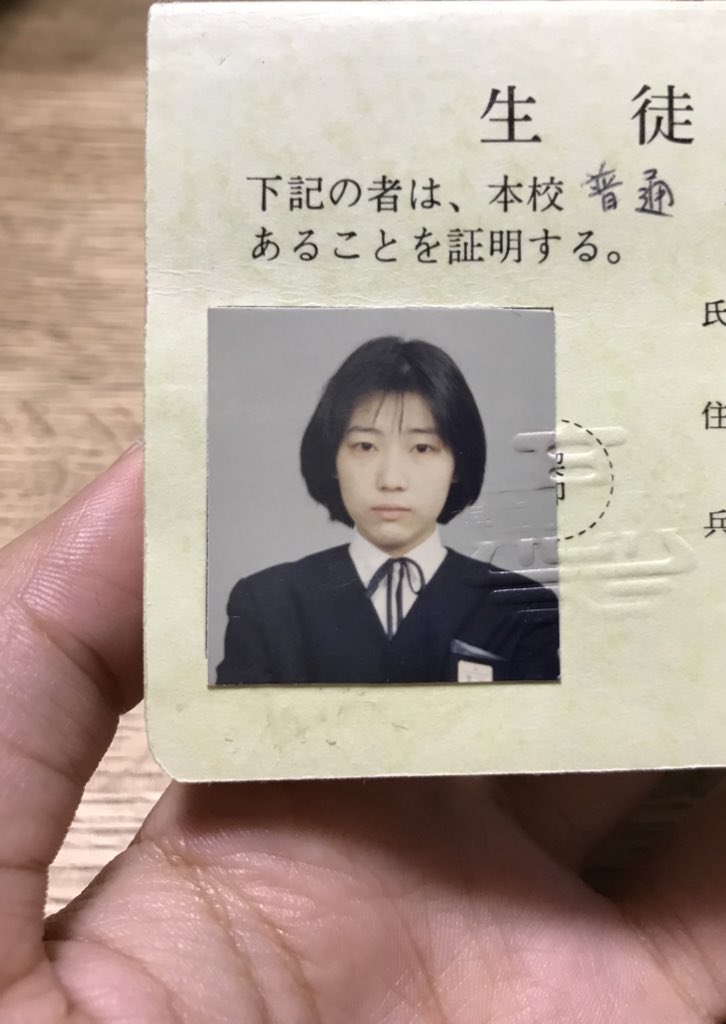 生徒
下記の者は、本校普通
あることを証明する。
氏
住
兵